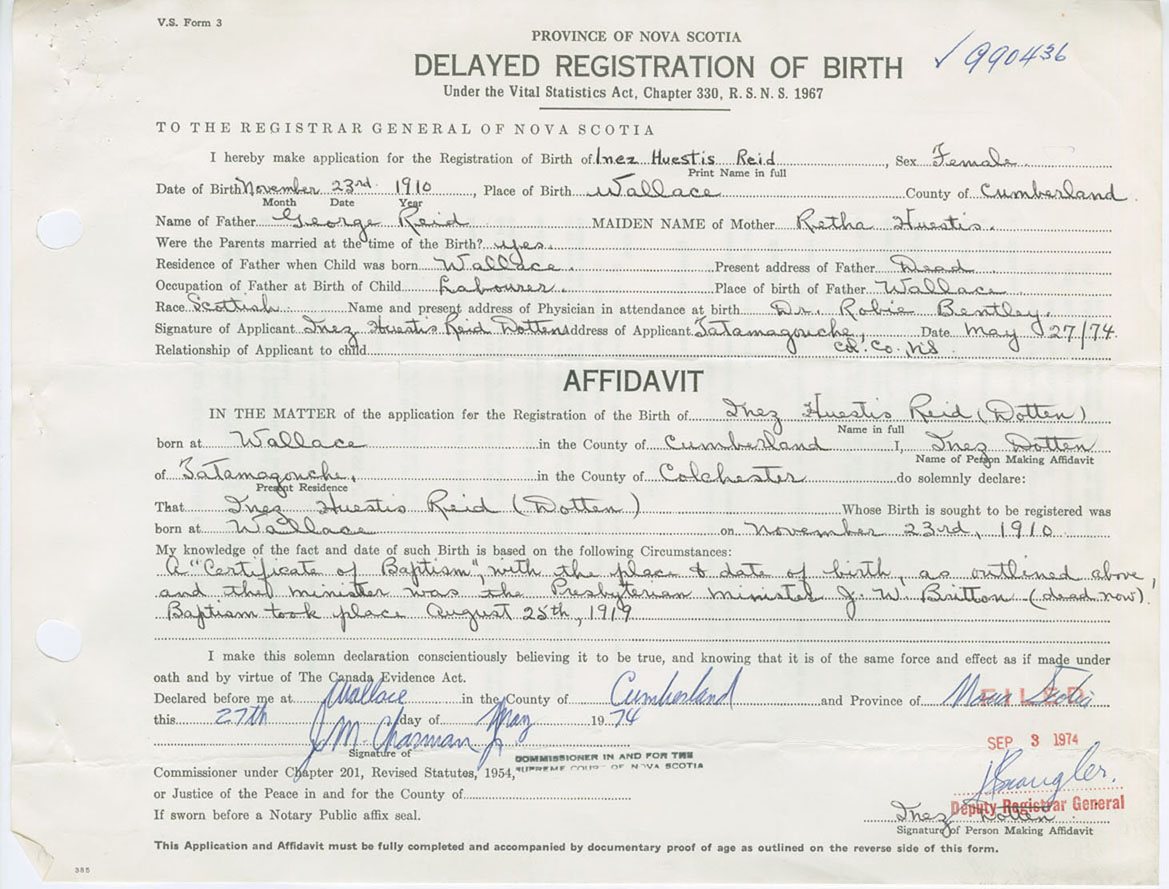 V.S. Form 3
PROVINCE OF NOVA SCOTIA
✓ 990436
DELAYED REGISTRATION OF BIRTH
Under the Vital Statistics Act, Chapter 330, R.S.N.S. 1967
TO THE REGISTRAR GENERAL OF NOVA SCOTIA
I hereby make application for the Registration of Birth of Inez Huestis Reid, Sex Female
Print Name in full
Date of Birth November 23rd 1910, Place of Birth Wallace County of Cumberland.
Month Date Year
Name of Father George Reid MAIDEN NAME of Mother Retha Huestis.
Were the Parents married at the time of the Birth? yes.
Residence of Father when Child was born Wallace. Present address of Father Dead
Occupation of Father at Birth of Child Labourer. Place of birth of Father Wallace
Race Scottish Name and present address of Physician in attendance at birth Dr. Robie Bentley.
Signature of Applicant Inez Huestis Reid Dotten Address of Applicant Tatamagouche, Date May 27/74.
Col. Co. N.S.
Relationship of Applicant to child
AFFIDAVIT
IN THE MATTER of the application for the Registration of the Birth of Inez Huestis Reid (Dotten)
Name in full
born at Wallace in the County of Cumberland I, Inez Dotten
Name of Person Making Affidavit
of Tatamagouche, in the County of Colchester do solemnly declare:
Present Residence
That Inez Huestis Reid (Dotten) Whose Birth is sought to be registered was
born at Wallace on November 23rd, 1910.
My knowledge of the fact and date of such Birth is based on the following Circumstances:
A "Certificate of Baptism", with the place & date of birth, as outlined above,
and the minister was the Presbyterian minister J. W. Britton (dead now).
Baptism took place August 25th, 1919
I make this solemn declaration conscientiously believing it to be true, and knowing that it is of the same force and effect as if made under
oath and by virtue of The Canada Evidence Act.
Declared before me at Wallace in the County of Cumberland and Province of Nova Scotia
FILED
this 27th day of May 1974
SEP 3 1974
J. M. Charman Jr
Signature of
COMMISSIONER IN AND FOR THE
SUPREME COURT OF NOVA SCOTIA
Commissioner under Chapter 201, Revised Statutes, 1954,
or Justice of the Peace in and for the County of
Deputy Registrar General
If sworn before a Notary Public affix seal.
Inez Dotten
Signature of Person Making Affidavit
This Application and Affidavit must be fully completed and accompanied by documentary proof of age as outlined on the reverse side of this form.
385